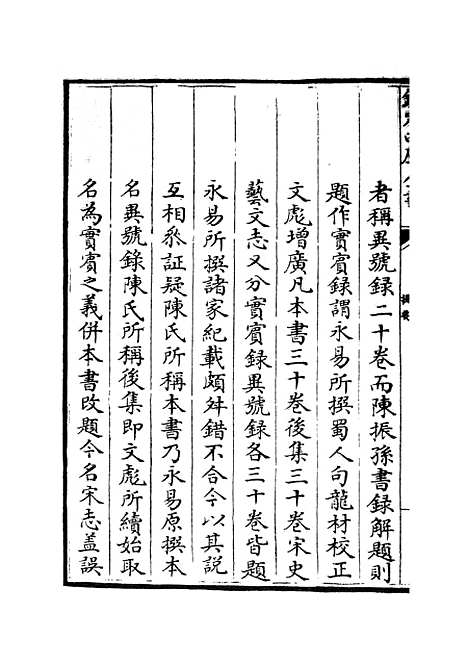 者稱異號録二十卷而陳振孫書録解題則
題作實賔録謂永易所撰蜀人句龍材校正
文彪增廣凡本書三十卷後集三十卷宋史
藝文志又分實賔録異號録各三十卷皆題
永易所撰諸家紀載頗舛錯不合今以其說
互相叅証疑陳氏所稱本書乃永易原撰本
名異號錄陳氏所稱後集即文彪所續始取
名為實賔之義併本書改題今名宋志蓋誤